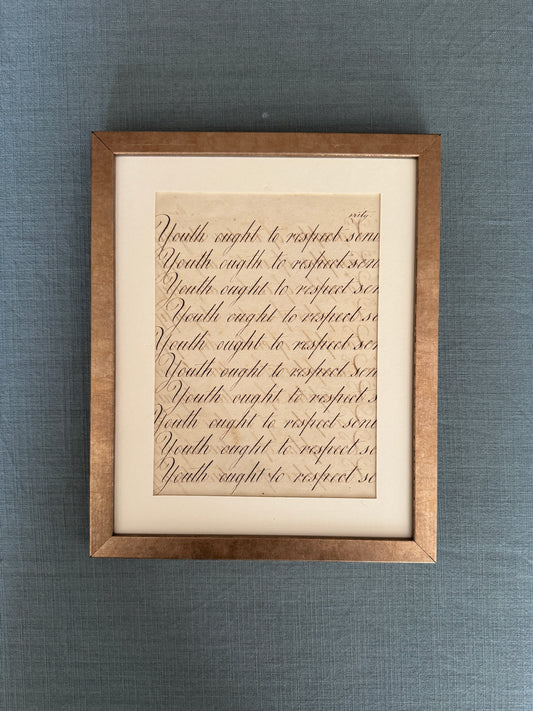 ority
Youth ought to respect seni
Youth ougth to respect sen
Youth ought to respect sen
Youth ought to respect se
Youth ought to respect sen
Youth ought to respect sen
Youth ought to respect se
Youth ought to respect seni
Youth ought to respect se
Youth ought to respect se